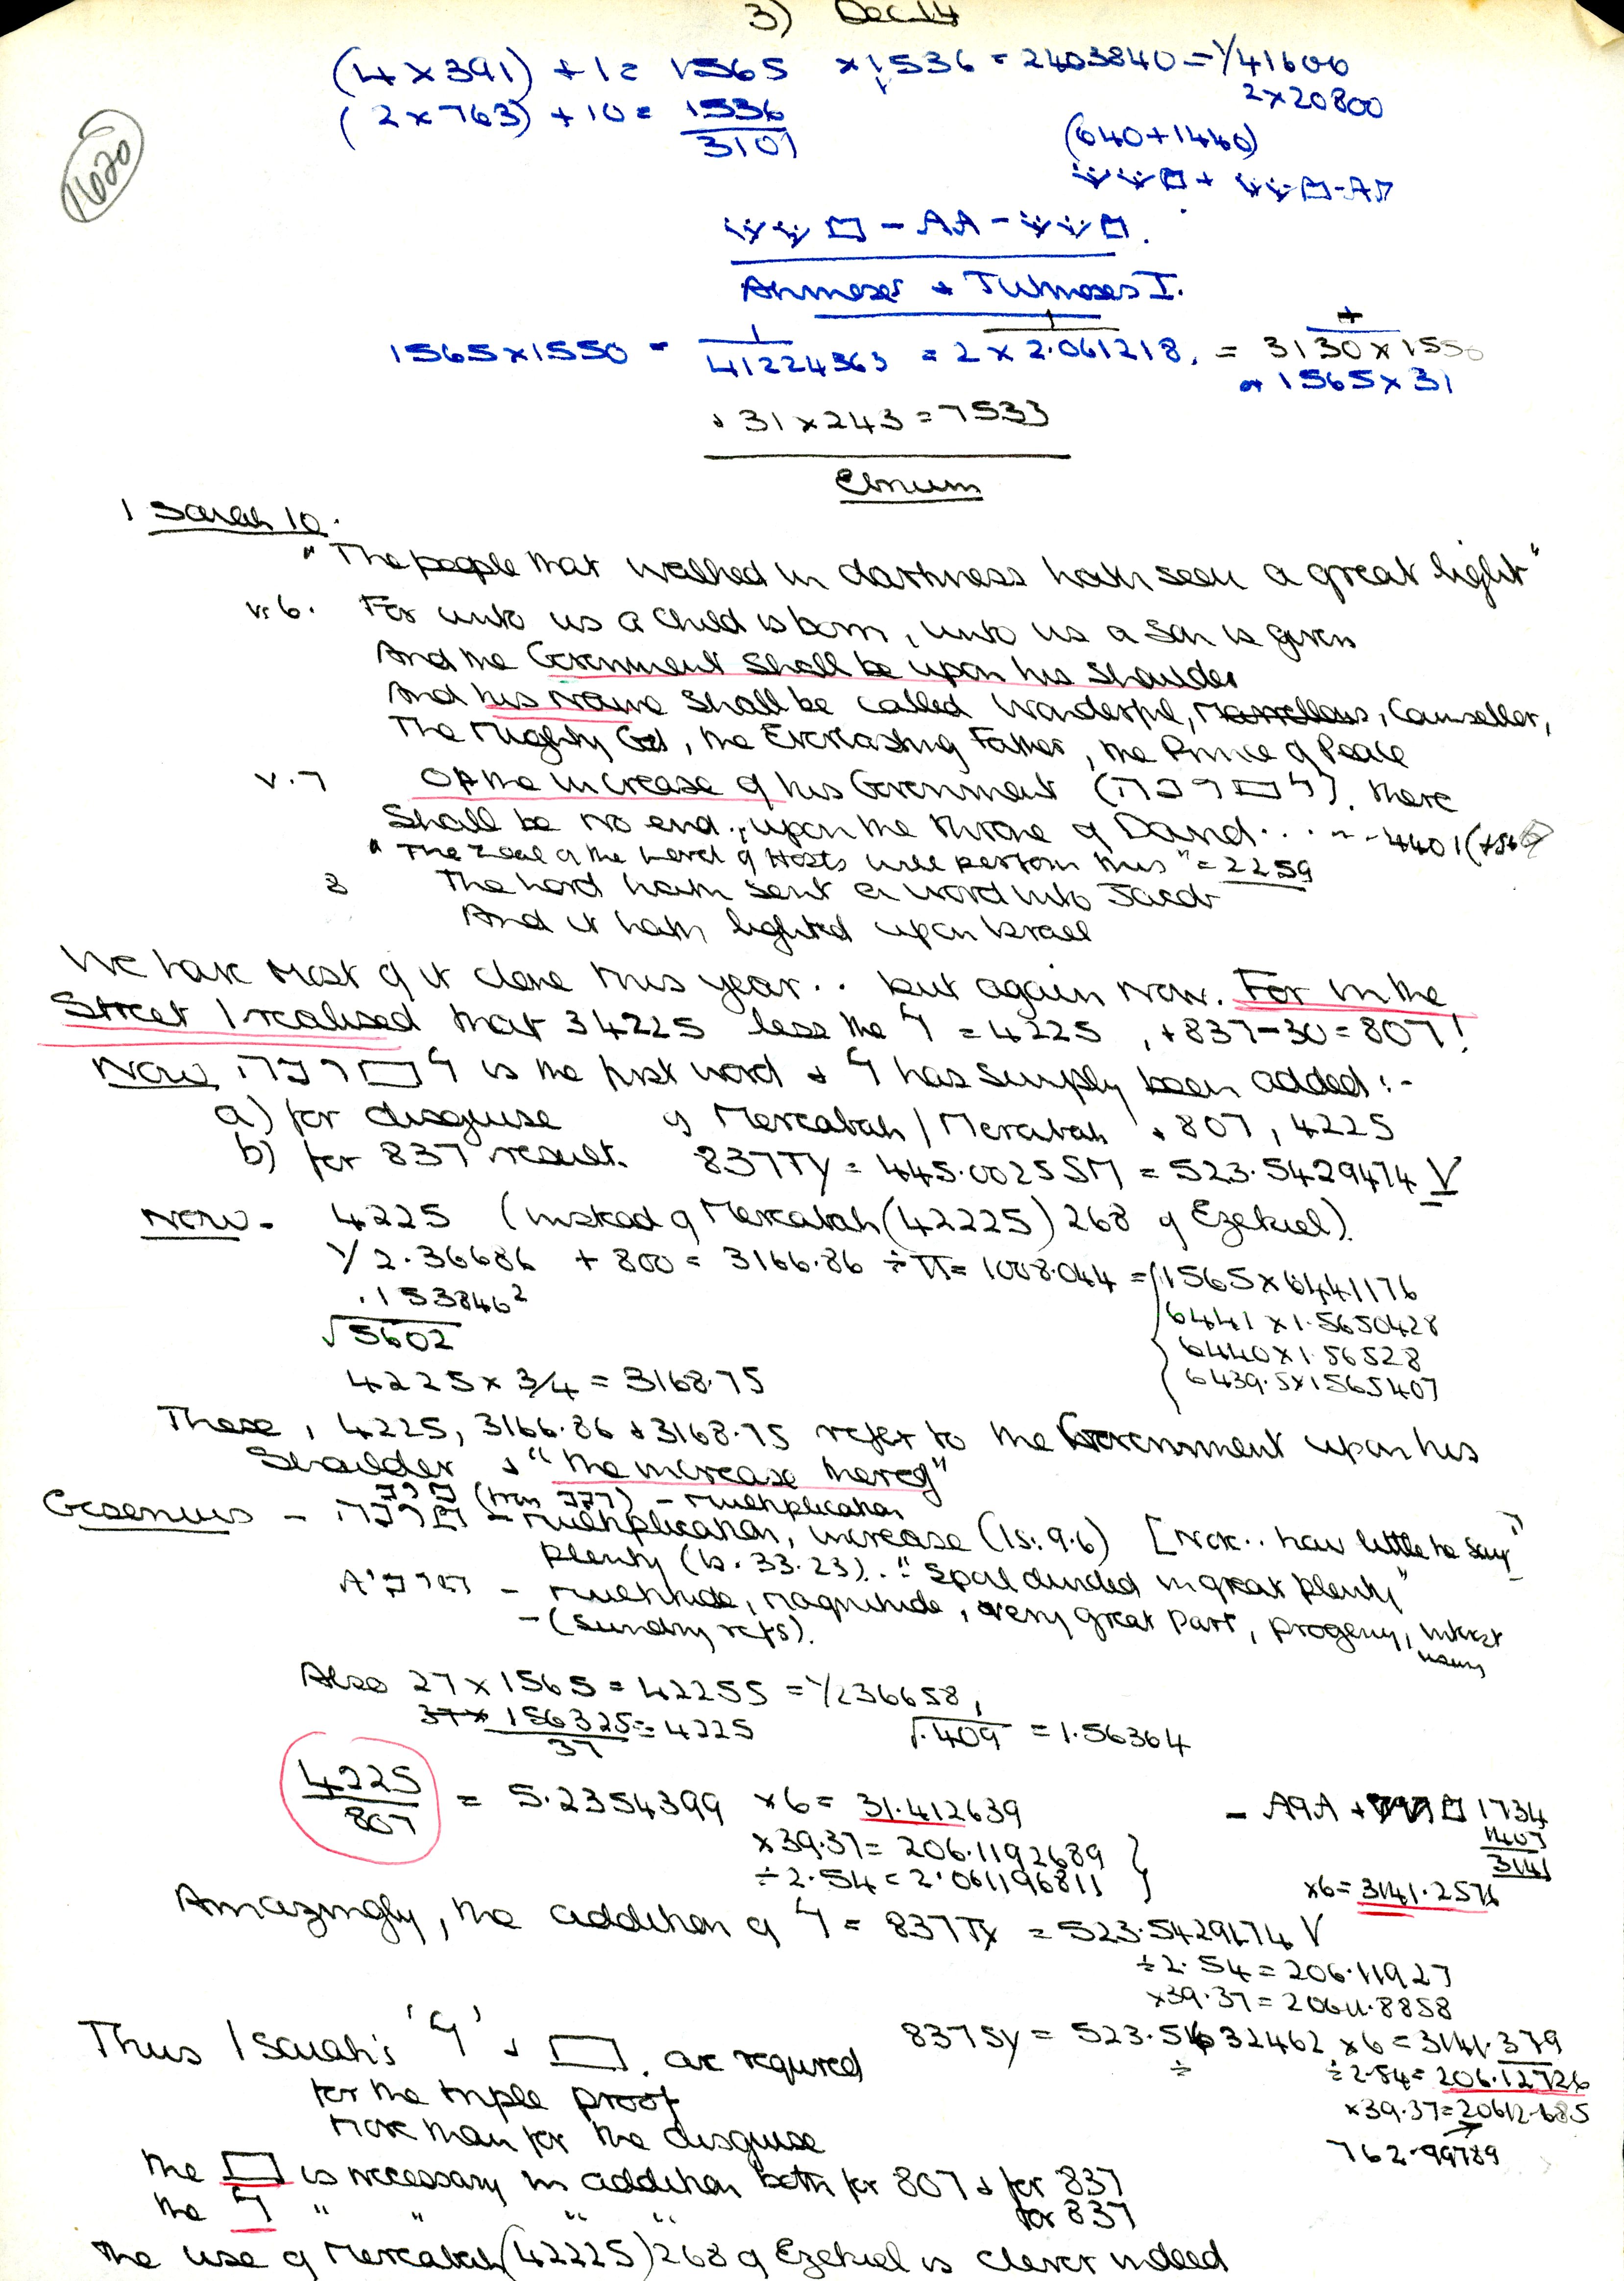 3) Dec 14
(4 x 391) + 1 = 1565 x 1536 = 2403840 = 1/41600
(2 x 763) + 10 = 1536
2 x 20800
3101
(640 + 1440)
11620
Ahmoses + Tutmoses I.
1565 x 1550 = 1/41224363 = 2 x 2.061218, = 3130 x 155
or 1565 x 31
+ 31 x 243 = 7533
Isaiah 10.
"The people that walked in darkness hath seen a great light"
v. 6. For unto us a Child is born, unto us a Son is given
And the Government shall be upon his shoulder
And his Name shall be called Wonderful, Marvellous, Counsellor,
The Mighty God, the Everlasting Father, the Prince of Peace
v. 7 Of the increase of his Government ( ). there
Shall be no end., upon the throne of David . . . 4401
"The Zeal of the Lord of Hosts will perform this" = 2259
8 The Lord hath sent a word into Jacob
And it hath lighted upon Israel
We have most of it done this year . . but again now. For in the
Street I realised that 34225 less the ם = 4225, + 837 - 30 = 807!
Now is the first word + ם has simply been added :-
a) for disguise of Mercabah / Merabah + 807, 4225
b) for 837 result. 837 TY = 445.0025 SM = 523.5429474 V
Now - 4225 (instead of Mercabah (42225) 268 of Ezekiel).
1/2.36686 + 800 = 3166.86 ÷ π = 1008.044 = 1565 x 6441176
.153846²
6441 x 1.5650428
√5602
6440 x 1.56528
4225 x 3/4 = 3168.75
6439.5 x 1565407
These, 4225, 3166.86 + 3168.75 refer to the Government upon his
Shoulder + "the increase thereof"
- multiplication
Gesenius - - multiplication, increase (Is. 9.6) [Note . . how little he says]
plenty (Is. 33.23). "Spoil divided in great plenty"
- multitude, magnitude, very great part, progeny, interest
usury
- (sundry refs).
Also 27 x 1565 = 42255 = 1/236658,
37 x 156325 = 4225
37
√.409 = 1.56364
4225/807 = 5.2354399 x 6 = 31.412639
- + 1734
x 39.37 = 206.1192689
1407
÷ 2.54 = 2.061196811
3141
x 6 = 3141.2576
Amazingly, the addition of ם = 837 TY = 523.5429474 V
÷ 2.54 = 206.11927
x 39.37 = 20611.8858
Thus Isaiah's 'ם' + ▭. are required
837 SY = 523.5632462 x 6 = 3141.379
for the triple proof
÷ 2.54 = 206.12726
x 39.37 = 20612.685
more than for the disguise
762.99789
the ▭ is necessary in addition both for 807 + for 837
the ם " " " " for 837
The use of Mercabah (42225) 268 of Ezekiel is clever indeed